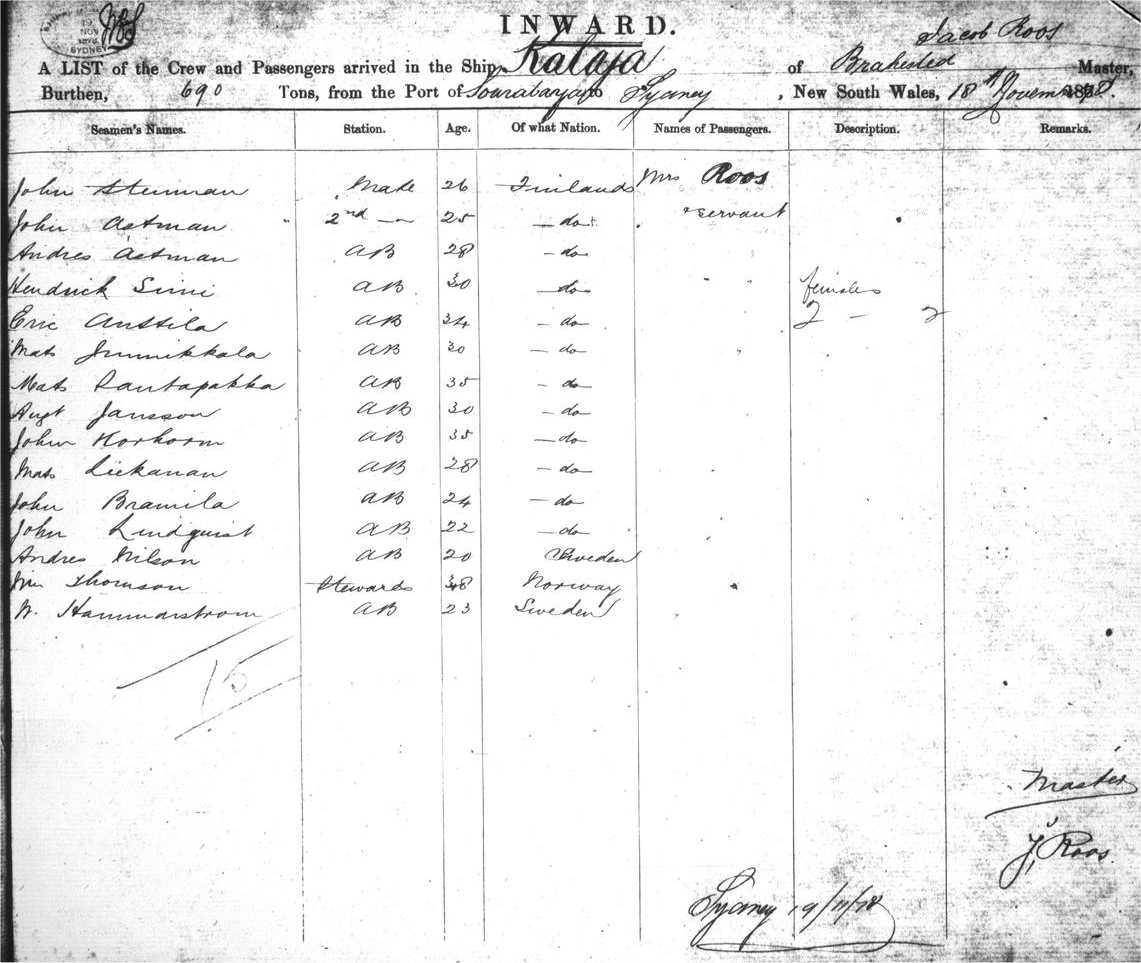 19
NOV
SYDNEY
INWARD.
Jacob Roos
A LIST of the Crew and Passengers arrived in the Ship Kalaja of Brahestad Master,
Burthen, 690 Tons, from the Port of Sourabaya to Sydney, New South Wales, 18th November 1878.
Seamen's Names. Station. Age. Of what Nation. Names of Passengers. Description. Remarks.
John Stenman Mate 26 Finland Mrs Roos
John Astman 2nd — 25 — do & servant
Andres Astman AB 28 — do
Hendrick Simi AB 30 — do females
Eric Anttila AB 34 — do 2 — 2
Mats Junnikkala AB 30 — do
Mats Rautapakka AB 35 — do
Augt Jansson AB 30 — do
John Korhorm AB 35 — do
Mats Liekanan AB 28 — do
John Bramila AB 24 — do
John Lindquist AB 22 — do
Andres Nilson AB 20 Sweden
Jno Thomson Stewards 38 Norway
W. Hammarstrom AB 23 Sweden
15
Master
J. Roos
Sydney 19/11/78